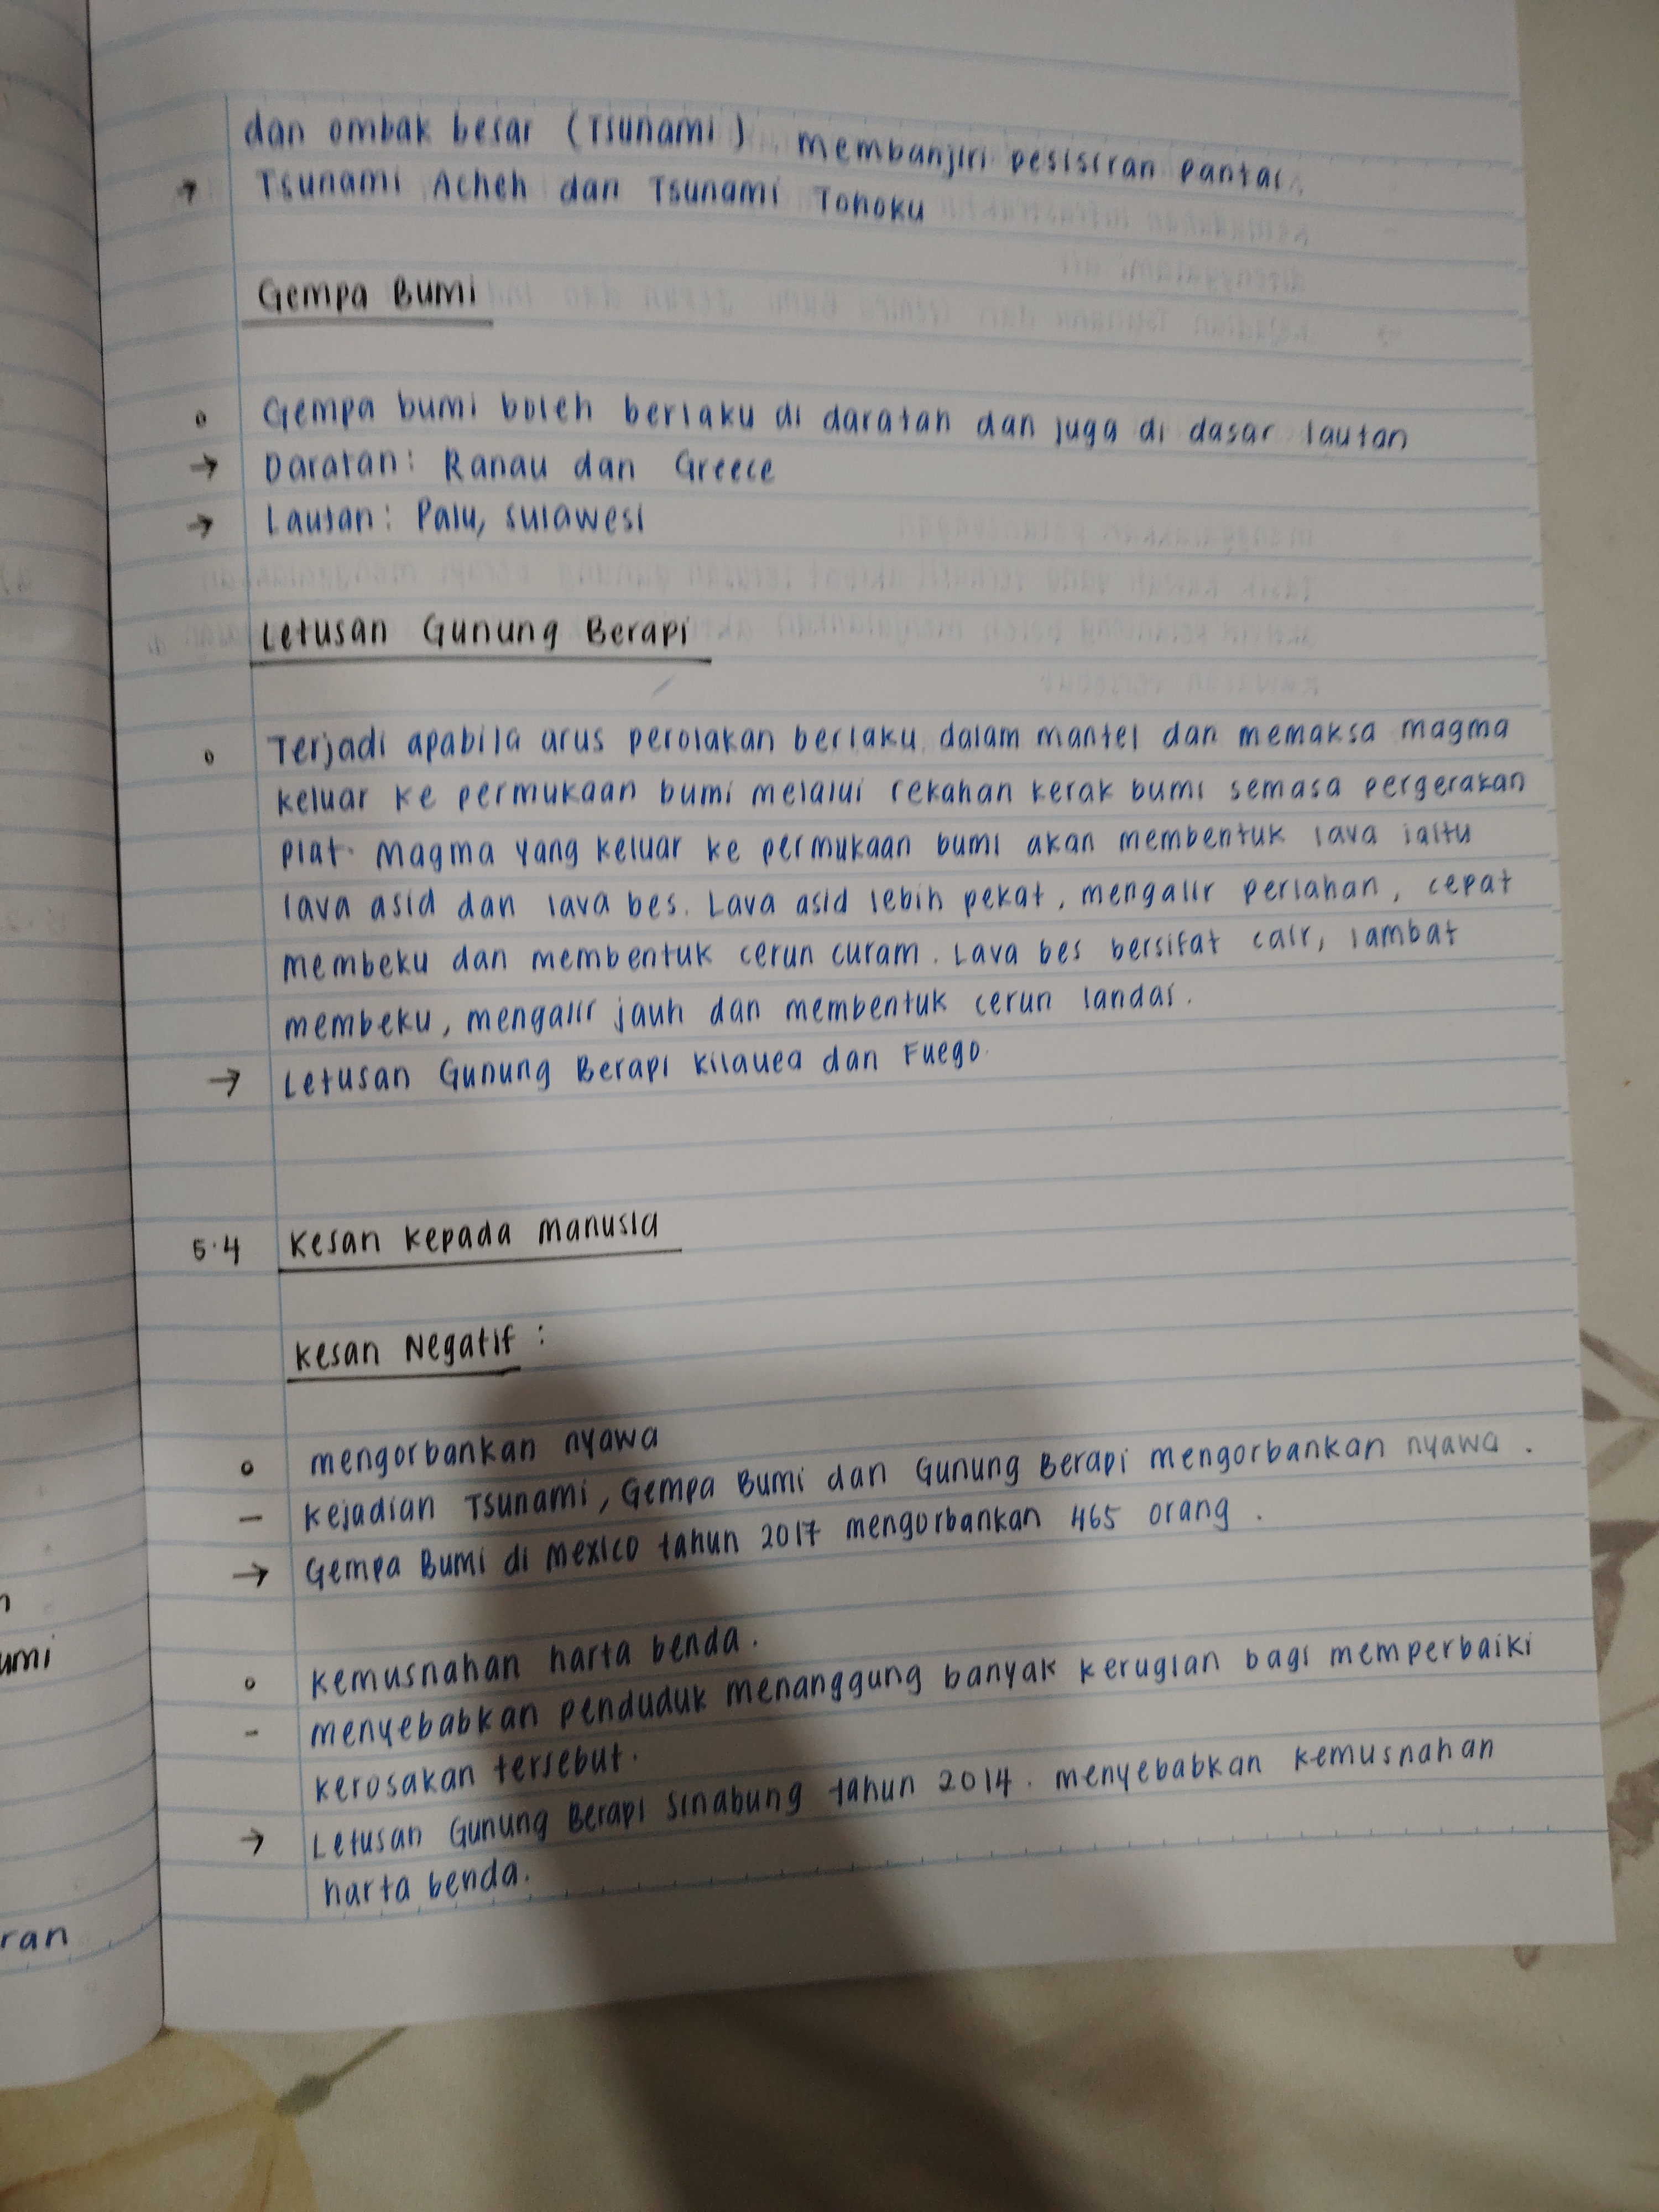 dan ombak besar (Tsunami) membanjiri pesisiran pantai.
→ Tsunami Acheh dan Tsunami Tohoku
Gempa Bumi
o Gempa bumi boleh berlaku di daratan dan juga di dasar lautan
→ Daratan: Ranau dan Greece
→ Lautan: Palu, Sulawesi
Letusan Gunung Berapi
o Terjadi apabila arus perolakan berlaku dalam mantel dan memaksa magma
keluar ke permukaan bumi melalui rekahan kerak bumi semasa pergerakan
plat. Magma yang keluar ke permukaan bumi akan membentuk lava iaitu
lava asid dan lava bes. Lava asid lebih pekat, mengalir perlahan, cepat
membeku dan membentuk cerun curam. Lava bes bersifat cair, lambat
membeku, mengalir jauh dan membentuk cerun landai.
→ Letusan Gunung Berapi Kilauea dan Fuego.
5.4 Kesan kepada manusia
Kesan Negatif :
o mengorbankan nyawa
- kejadian Tsunami, Gempa Bumi dan Gunung Berapi mengorbankan nyawa.
→ Gempa Bumi di Mexico tahun 2017 mengorbankan 465 orang.
o kemusnahan harta benda.
- menyebabkan penduduk menanggung banyak kerugian bagi memperbaiki
kerosakan tersebut.
→ Letusan Gunung Berapi Sinabung tahun 2014. menyebabkan kemusnahan
harta benda.
umi
ran